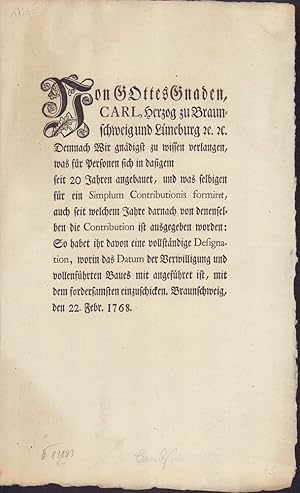 Von GOttes Gnaden,
CARL, Herzog zu Braun-
schweig und Lüneburg ꝛc. ꝛc.
Demnach Wir gnädigst zu wissen verlangen,
was für Personen sich in dasigem
seit 20 Jahren angebauet, und was selbigen
für ein Simplum Contributionis formiret,
auch seit welchem Jahre darnach von denensel-
ben die Contribution ist ausgegeben worden:
So habet ihr davon eine vollständige Designa-
tion, worin das Datum der Verwilligung und
vollenführten Baues mit angeführet ist, mit
dem fordersamsten einzuschicken. Braunschweig,
den 22. Febr. 1768.